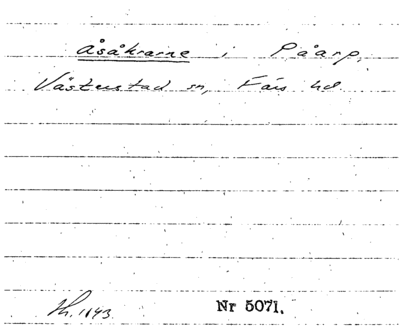 Åsåkrarne i Påarp,
Västerstad sn, Färs hd.
Nr 5071.